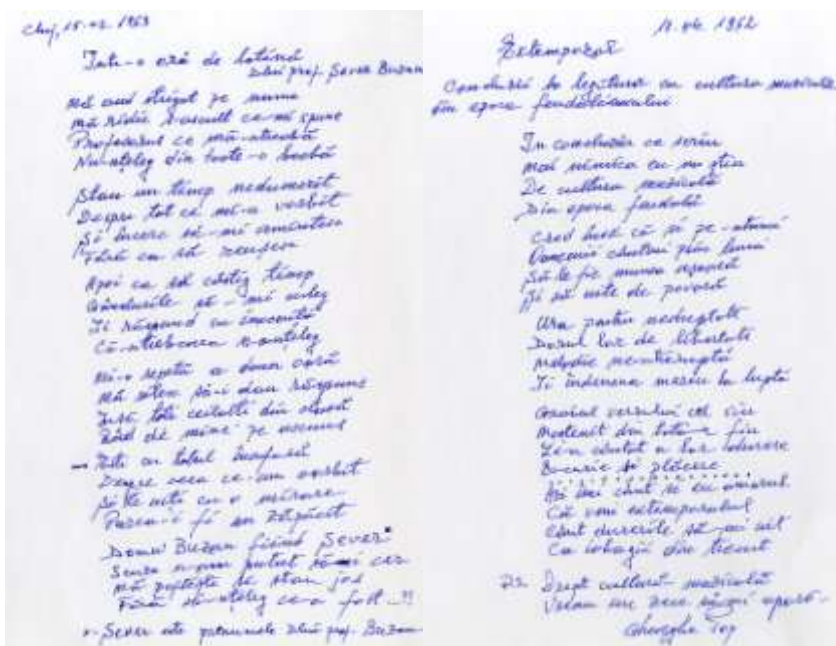 Cluj, 15.02.1963
Într-o oră de latină
Dlui prof. Sever Buzan
Mă aud strigat pe nume
Mă ridic s-ascult ce-mi spune
Profesorul ce mă-ntreabă
Nu-nțeleg din toate-o boabă
Stau un timp nedumerit
Despre tot ce mi-a vorbit
Și încerc să-mi amintesc
Fără ca să reușesc
Apoi ca să câștig timp
Gândurile să-mi
Îi răspund cu inocență
Că-ntrebarea n-o-nțeleg
Mi-o repetă a doua oară
Mă să-i dau răspuns
Însă toți ceilalți din
Râd de mine pe ascuns
Ești cu totul
Despre ceea ce-am vorbit
Și te uiți cu o mirare
Parcă-i fi un zăpăcit
Domnul Buzan fiind Sever*
Scuze n-am putut să-i cer
Mă poftește să stau jos
Fără să-nțeleg ce-a fost...!!
*-Sever este prenumele Dlui prof. Buzan
1962
Extemporal
Concluzii în legătură cu cultura muzicală
din epoca feudalismului
În concluzie ce scriu
Mai nimica eu nu știu
De cultura muzicală
Din epoca feudală
Cred însă că și pe-atunci
Oamenii cântau prin lunci
Să le fie munca ușoară
Și să uite de povară
Ura pentru nedreptate
Dorul lor de libertate
Melodie neîntreruptă
Îi îndemna mereu la luptă
Graiul versului cel viu
Moștenit din tată-n fiu
Le-a cântat a lor durere
Bucurie și plăcere
Azi îmi cânt și eu amarul
Că veni extemporalul
Cânt durerile să-mi uit
Ca iobagii din trecut
DS. Drept cultură muzicală
Vreau un zece
Gheorghe Pop